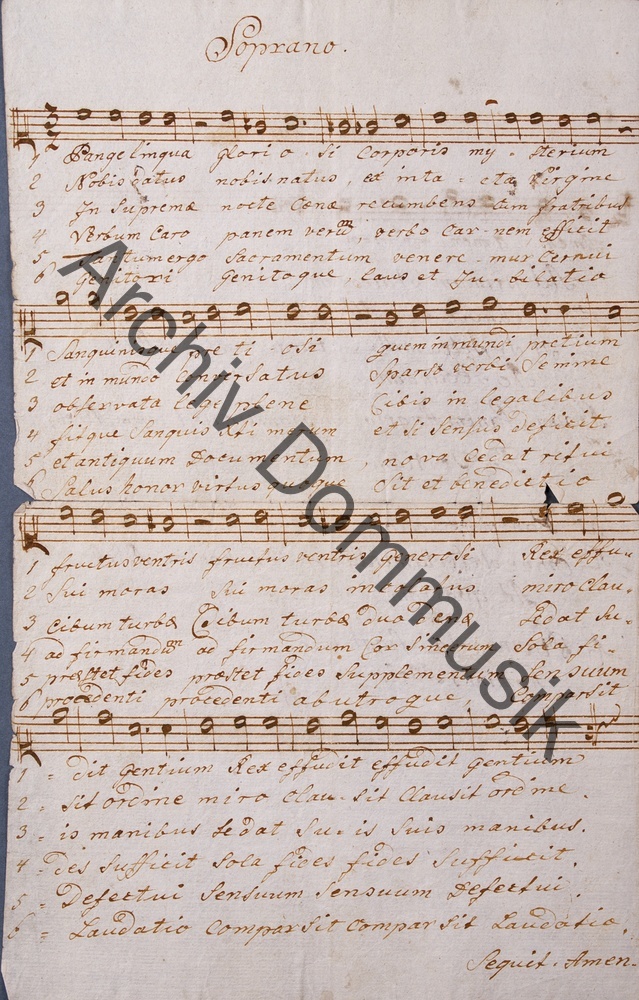 Soprano.
1 Pange lingua glorio - si Corporis my - sterium
2 Nobis datus nobis natus, ex inta - cta Virgine
3 In Supremæ nocte Cenæ recumbens cum fratribus
4 Verbum Caro panem verum, verbo Car - nem efficit
5 Tantum ergo Sacramentum venere - mur Cernui
6 Genitori Genitoque, laus et Ju - bilatio
1 Sanguinisque pre ti - osi quem in mundi pretium
2 et in mundo Conversatus Sparso verbi Semine
3 observata lege plene Cibis in legalibus
4 fitque Sanguis Xti merum et si Sensus deficit.
5 et antiquum Documentum, novo Cedat ritui
6 Salus honor virtus quoque Sit et benedictio
1 fructus ventris fructus ventris generosi Rex effu -
2 Sui moras Sui moras incolatus miro Clau -
3 Cibum turbæ Cibum turbæ duodenæ Se dat Su -
4 ad firmandum ad firmandum Cor Sincerum Sola fi -
5 præstet fides præstet fides Supplementum Sensuum
6 procedenti procedenti ab utroque, Compar sit
1 - dit gentium Rex effudit effudit gentium
2 - sit ordine miro Clau - sit Clausit ordine.
3 - is manibus se dat Su - is Suis manibus.
4 - des sufficit Sola fides fides Sufficit.
5 - Defectui Sensuum Sensuum Defectui.
6 - Laudatio Compar Sit Compar Sit Laudatio.
Sequit. Amen.
Archiv Dommusik